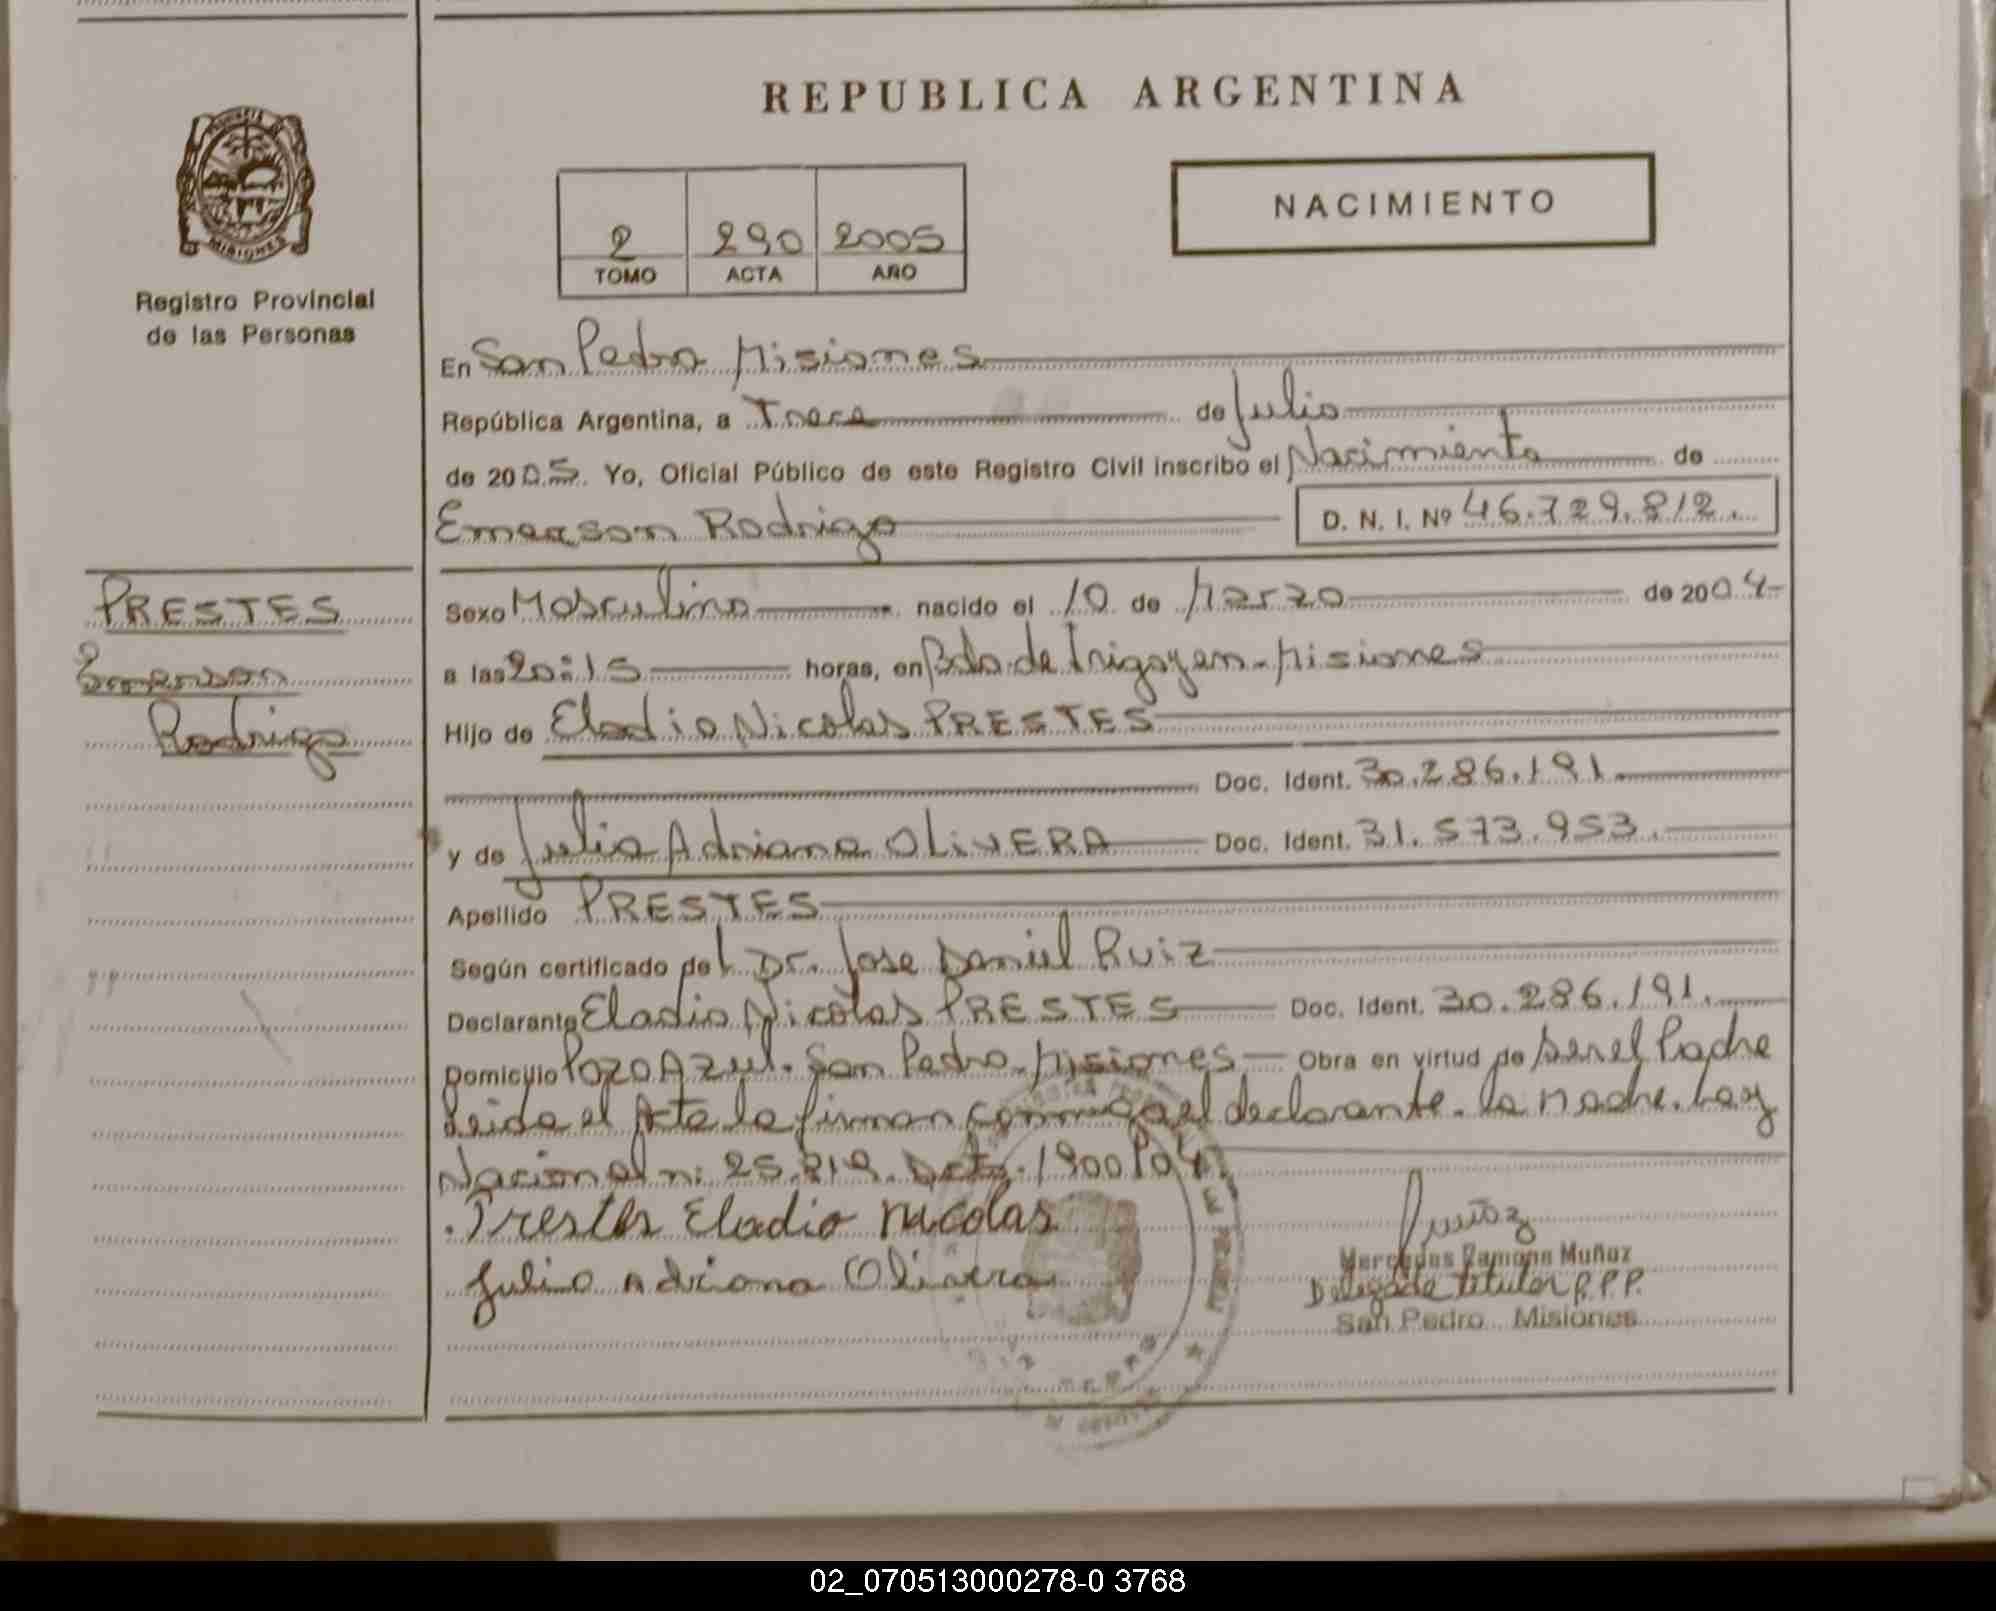 REPUBLICA ARGENTINA
NACIMIENTO
2 290 2005
TOMO ACTA AÑO
MISIONES
Registro Provincial
de las Personas
En San Pedro Misiones
República Argentina, a Trece de Julio
de 2005. Yo, Oficial Público de este Registro Civil inscribo el Nacimiento de
Emerson Rodrigo D. N. I. Nº 46.729.812.
PRESTES
Emerson
Rodrigo
Sexo Masculino nacido el 10 de Marzo de 2004
a las 20:15 horas, en Bdo. de Irigoyen - Misiones
Hijo de Eladio Nicolas PRESTES
Doc. Ident. 30.286.191
y de Julia Adriana OLIVERA Doc. Ident. 31.573.953.
Apellido PRESTES
Según certificado del Dr. Jose Daniel Ruiz
Declarante Eladio Nicolas PRESTES Doc. Ident. 30.286.191.
Domicilio Pozo Azul. San Pedro. Misiones Obra en virtud de Ser el Padre
Leida el Acta la firman conmigo el declarante. la Madre. Ley
Nacional n: 25.819. Dcto. 1900/04.
Prestes Eladio nicolas
Julia Adriana Olivera
Mercedes Ramona Muñoz
Delegada titular R.P.P.
San Pedro Misiones
02_070513000278-0 3768